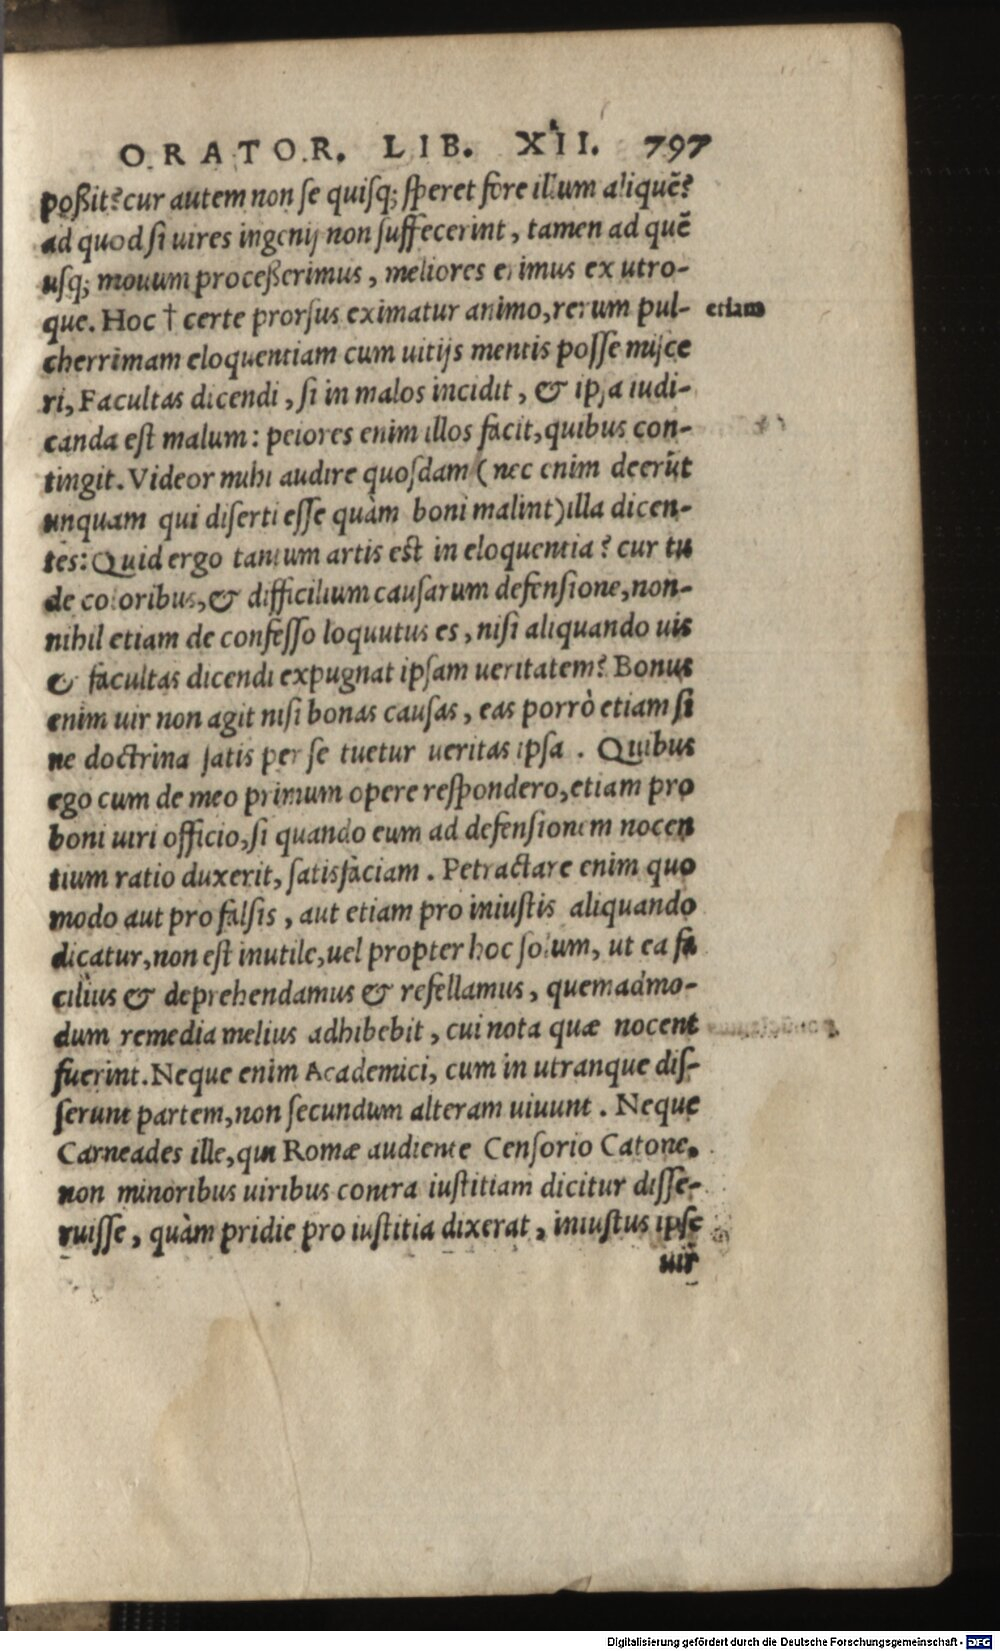 ORATOR. LIB. XII. 797
poßit? cur autem non se quisq; speret fore illum aliquẽ?
ad quod si uires ingenij non suffecerint, tamen ad quẽ
usq; mouum proceßerimus, meliores erimus ex utro-
que. Hoc † certe prorsus eximatur animo, rerum pul-
etiam
cherrimam eloquentiam cum uitijs mentis posse misce
ri, Facultas dicendi, si in malos incidit, & ipsa iudi-
canda est malum: peiores enim illos facit, quibus con-
tingit. Videor mihi audire quosdam (nec enim deerũt
unquam qui diserti esse quàm boni malint) illa dicen-
tes: Quid ergo tantum artis est in eloquentia? cur tu
de coloribus, & difficilium causarum defensione, non-
nihil etiam de confesso loquutus es, nisi aliquando uis
& facultas dicendi expugnat ipsam ueritatem? Bonus
enim uir non agit nisi bonas causas, eas porrò etiam si
ne doctrina satis per se tuetur ueritas ipsa. Quibus
ego cum de meo primum opere respondero, etiam pro
boni uiri officio, si quando eum ad defensionem nocen
tium ratio duxerit, satisfaciam. Petractare enim quo
modo aut pro falsis, aut etiam pro iniustis aliquando
dicatur, non est inutile, uel propter hoc solum, ut ea fa
cilius & deprehendamus & refellamus, quemadmo-
dum remedia melius adhibebit, cui nota quæ nocent
fuerint. Neque enim Academici, cum in utranque dis-
serunt partem, non secundum alteram uiuunt. Neque
Carneades ille, qui Romæ audiente Censorio Catone.
non minoribus uiribus contra iustitiam dicitur disse-
ruisse, quàm pridie pro iustitia dixerat, iniustus ipse
uir
Digitalisierung gefördert durch die Deutsche Forschungsgemeinschaft - DFG